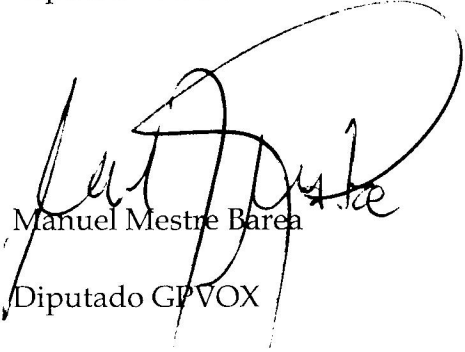 Manuel Mestre Barea
Diputado GPVOX